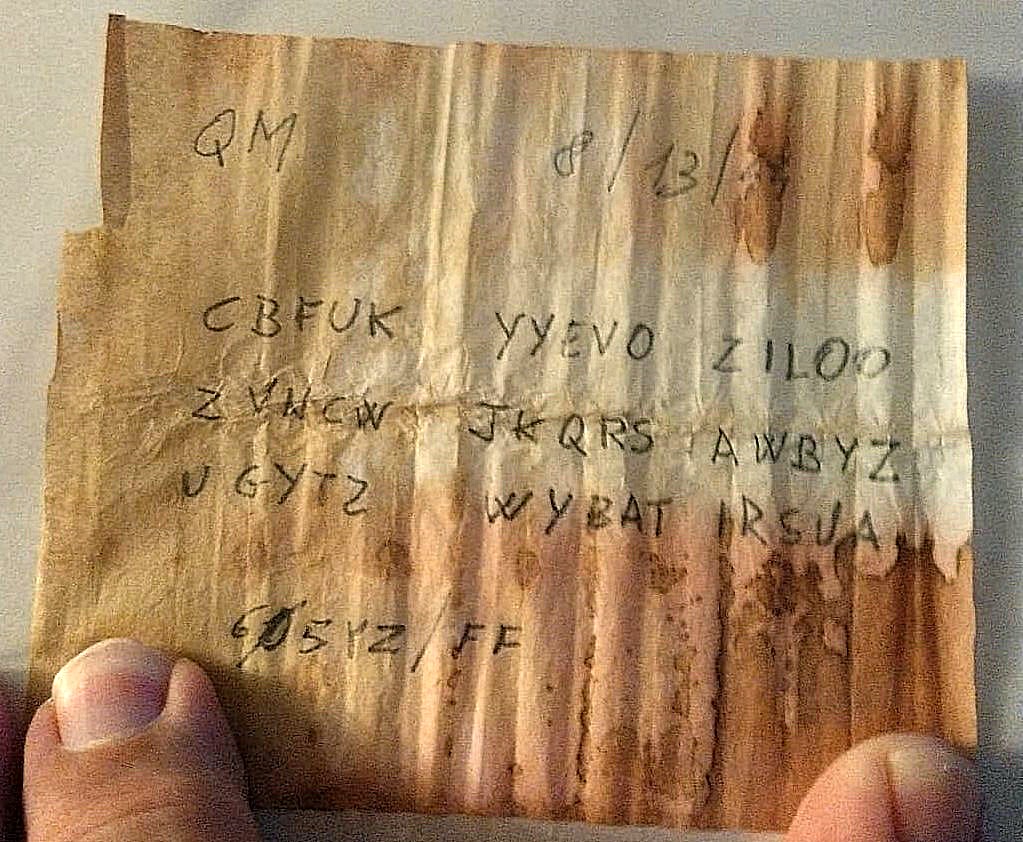 QM 8/13/
CBFUK YYEVO ZILOO
ZVHCW JKQRS AWBYZ
UGYTZ WYBAT IRSUA
6Ø5YZ/FF